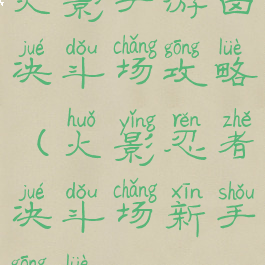 火影手游
jué dǒu chǎng gōng lüè
决斗场攻略
huǒ yǐng rěn zhě
（火影忍者
jué dǒu chǎng xīn shǒu
决斗场新手
gōng lüè